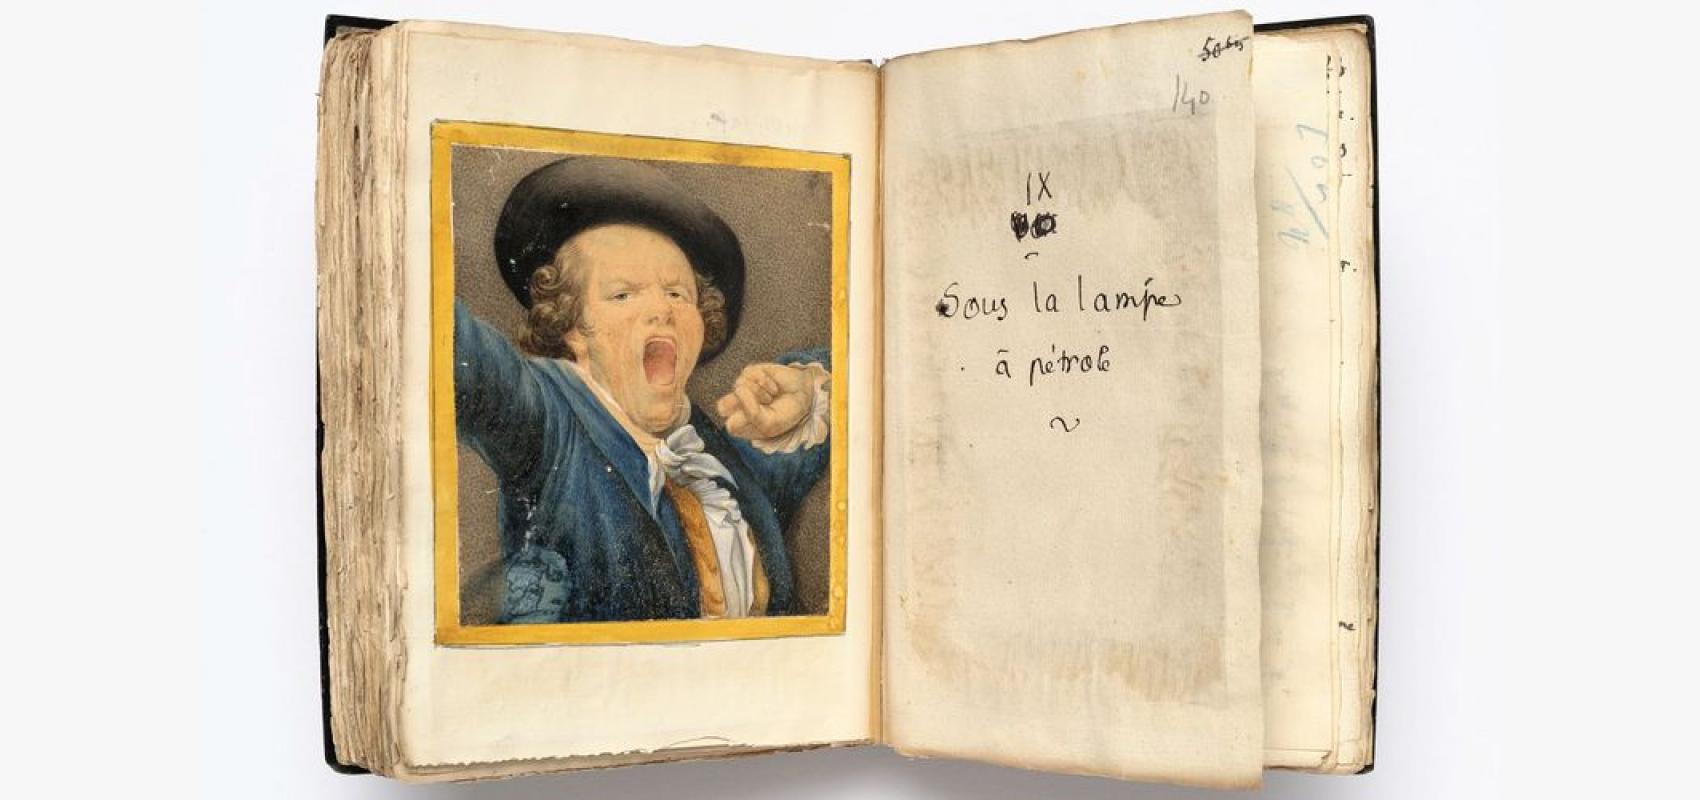 140
IX
Sous la lampe
à pétrole